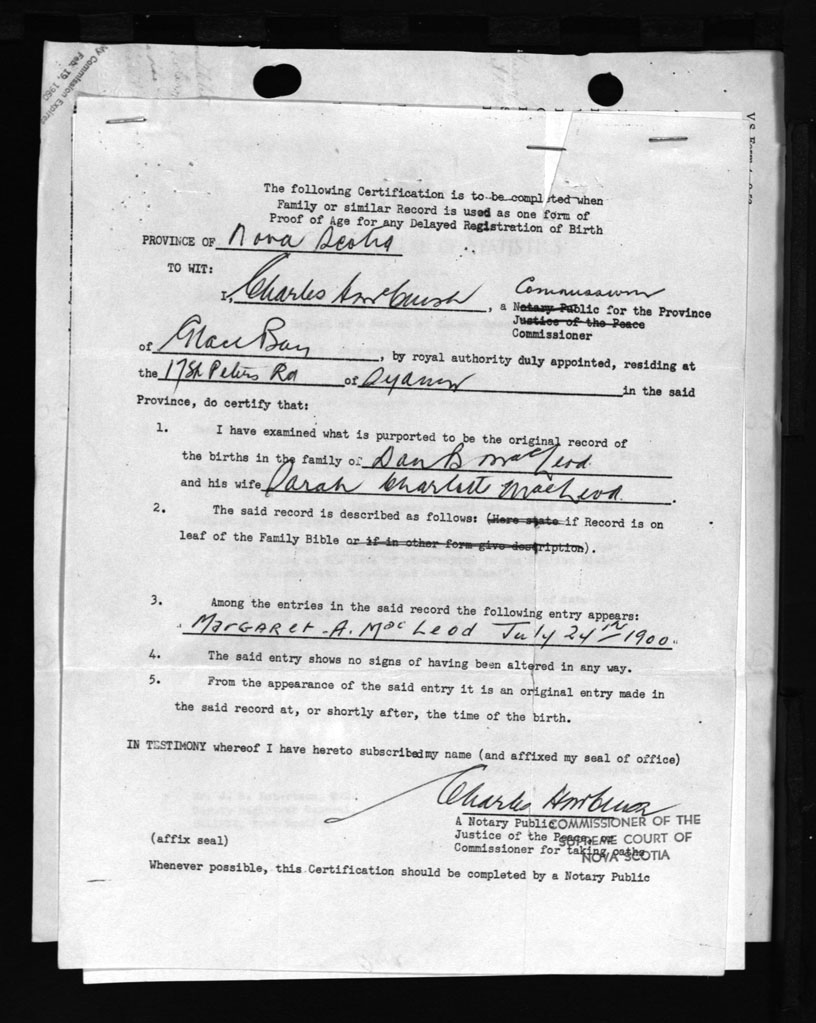 My Commission Expires
Feb. 19, 196
The following Certification is to be completed when
Family or similar Record is used as one form of
Proof of Age for any Delayed Registration of Birth
PROVINCE OF Nova Scotia
TO WIT:
Commissioner
I, Charles , a Notary Public for the Province
Justice of the Peace
Commissioner
of Glace Bay , by royal authority duly appointed, residing at
the 17 St Peters Rd of Sydney in the said
Province, do certify that:
1. I have examined what is purported to be the original record of
the births in the family of Dan B MacLeod
and his wife Sarah Charlotte MacLeod .
2. The said record is described as follows: (Here state if Record is on
leaf of the Family Bible or if in other form give description).
3. Among the entries in the said record the following entry appears:
" MARGARET A. MacLeod July 24th 1900 "
4. The said entry shows no signs of having been altered in any way.
5. From the appearance of the said entry it is an original entry made in
the said record at, or shortly after, the time of the birth.
IN TESTIMONY whereof I have hereto subscribed my name (and affixed my seal of office)
Charles
A Notary Public COMMISSIONER OF THE
Justice of the Peace, or SUPREME COURT OF
(affix seal) Commissioner for taking oaths NOVA SCOTIA
Whenever possible, this Certification should be completed by a Notary Public